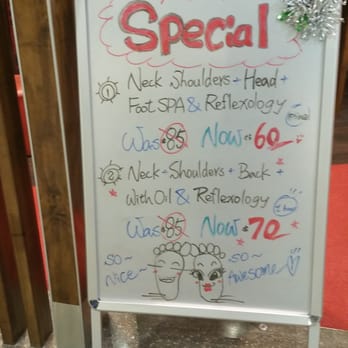 Special
① Neck Shoulders + Head +
Foot SPA & Reflexology
Was $85 Now $60
② Neck + Shoulders + Back +
With Oil & Reflexology
Was $85 Now $70
SO~ Nice~
SO~ Awesome~